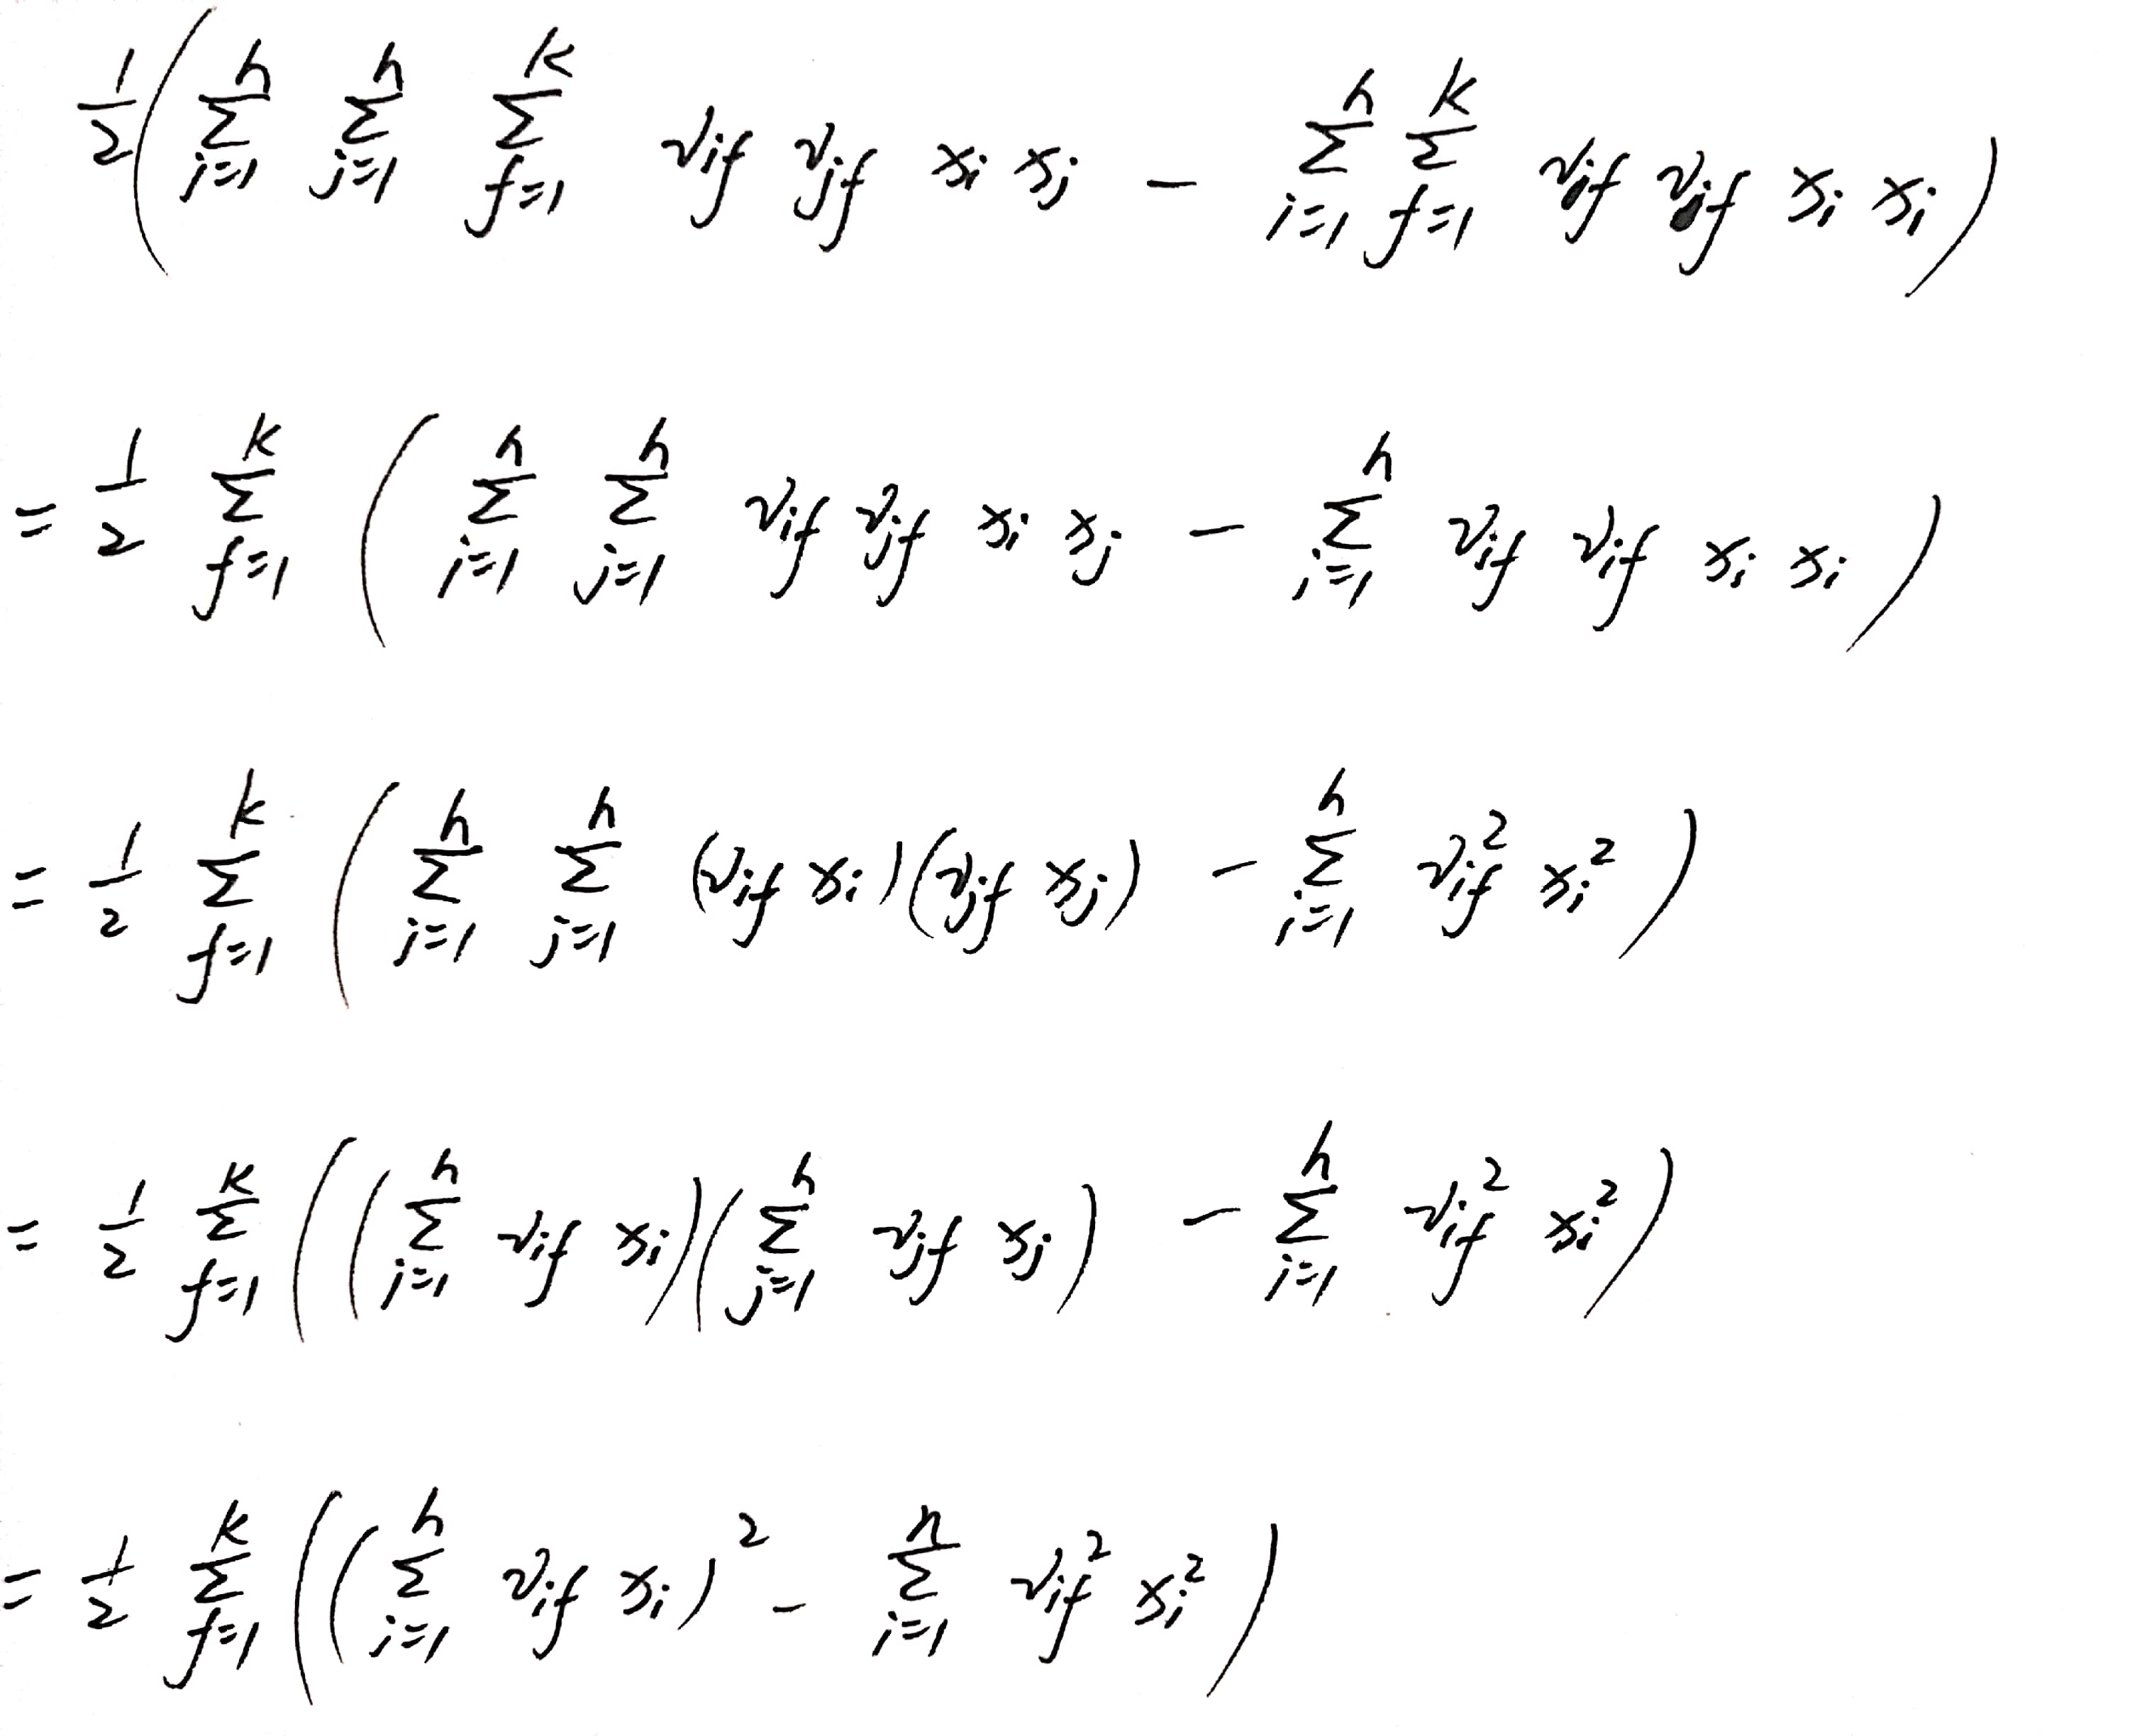 \frac{1}{2}\left(\sum_{i=1}^{n}\sum_{j=1}^{n}\sum_{f=1}^{k} v_{if} v_{jf} x_i x_j - \sum_{i=1}^{n}\sum_{f=1}^{k} v_{if} v_{if} x_i x_i\right)
= \frac{1}{2}\sum_{f=1}^{k}\left(\sum_{i=1}^{n}\sum_{j=1}^{n} v_{if} v_{jf} x_i x_j - \sum_{i=1}^{n} v_{if} v_{if} x_i x_i\right)
= \frac{1}{2}\sum_{f=1}^{k}\left(\sum_{i=1}^{n}\sum_{j=1}^{n} (v_{if} x_i)(v_{jf} x_j) - \sum_{i=1}^{n} v_{if}^2 x_i^2\right)
= \frac{1}{2}\sum_{f=1}^{k}\left(\left(\sum_{i=1}^{n} v_{if} x_i\right)\left(\sum_{j=1}^{n} v_{jf} x_j\right) - \sum_{i=1}^{n} v_{if}^2 x_i^2\right)
= \frac{1}{2}\sum_{f=1}^{k}\left(\left(\sum_{i=1}^{n} v_{if} x_i\right)^2 - \sum_{i=1}^{n} v_{if}^2 x_i^2\right)